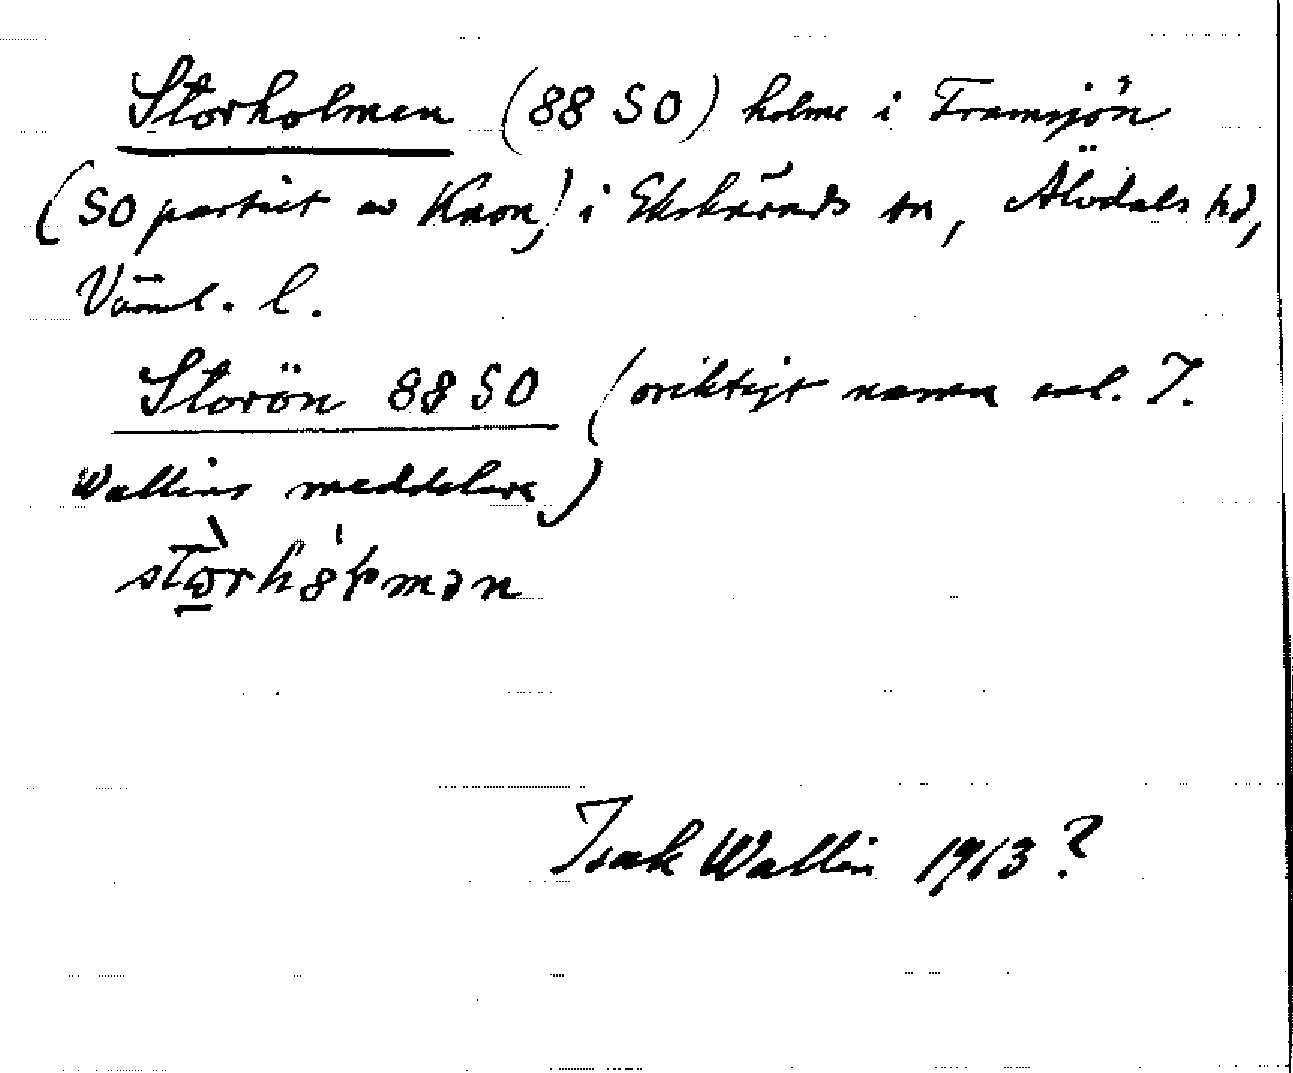 Storholmen (88 SO) holme i Tramsjön
(SO partiet av Knon) i Ekshärads sn, Älvdals hd,
Värml. l.
Storön 88 SO (oriktigt namn enl. I.
Wallins meddelare)
Isak Wallin 1913?